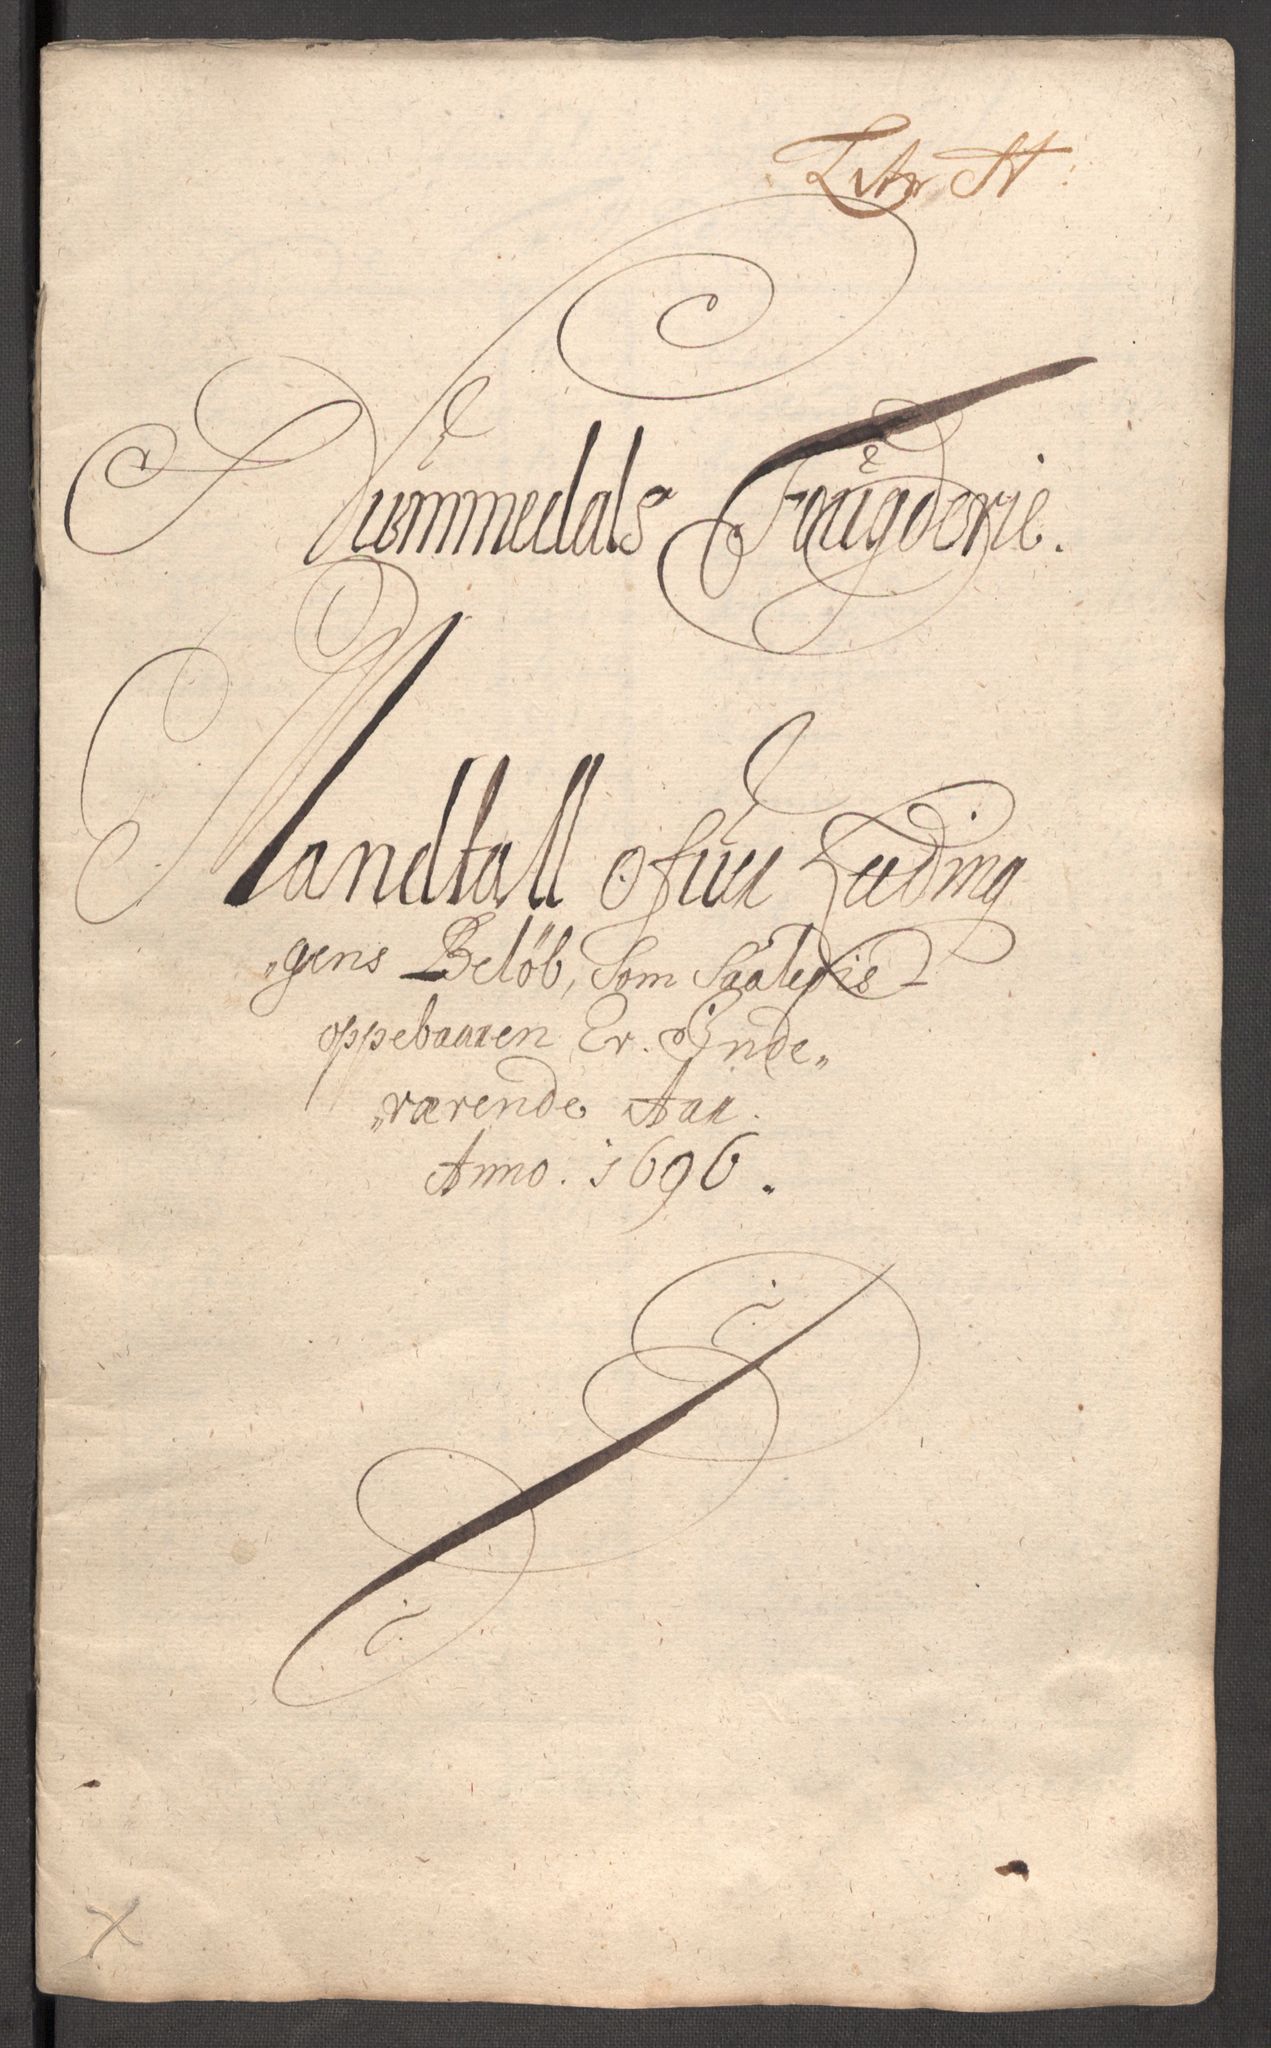 Litr A:
Nummedals Fougderie.
Mandtall ofuer Leeding
„gens Belöb, Som Saaledis
oppebaaren Er. Inde„
„værende Aar.
Anno. 1696.